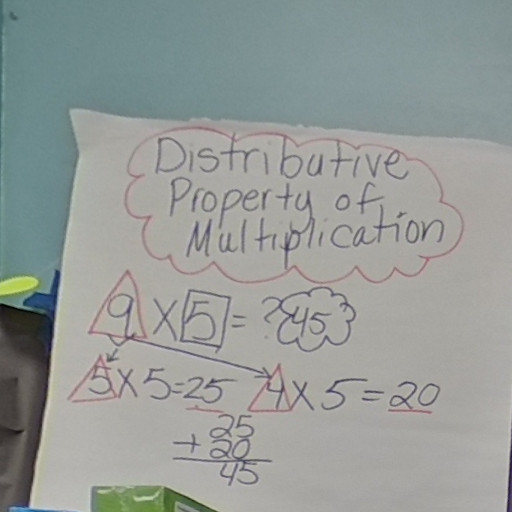 Distributive
Property of
Multiplication
9 X 5 = ? 45
5 X 5 = 25 4 X 5 = 20
25
+ 20
45